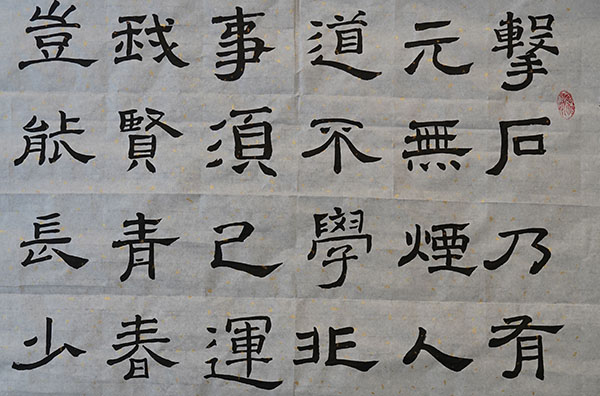 擊石乃有
元無煙人
道不學非
事須己運
我賢青春
豈能長少